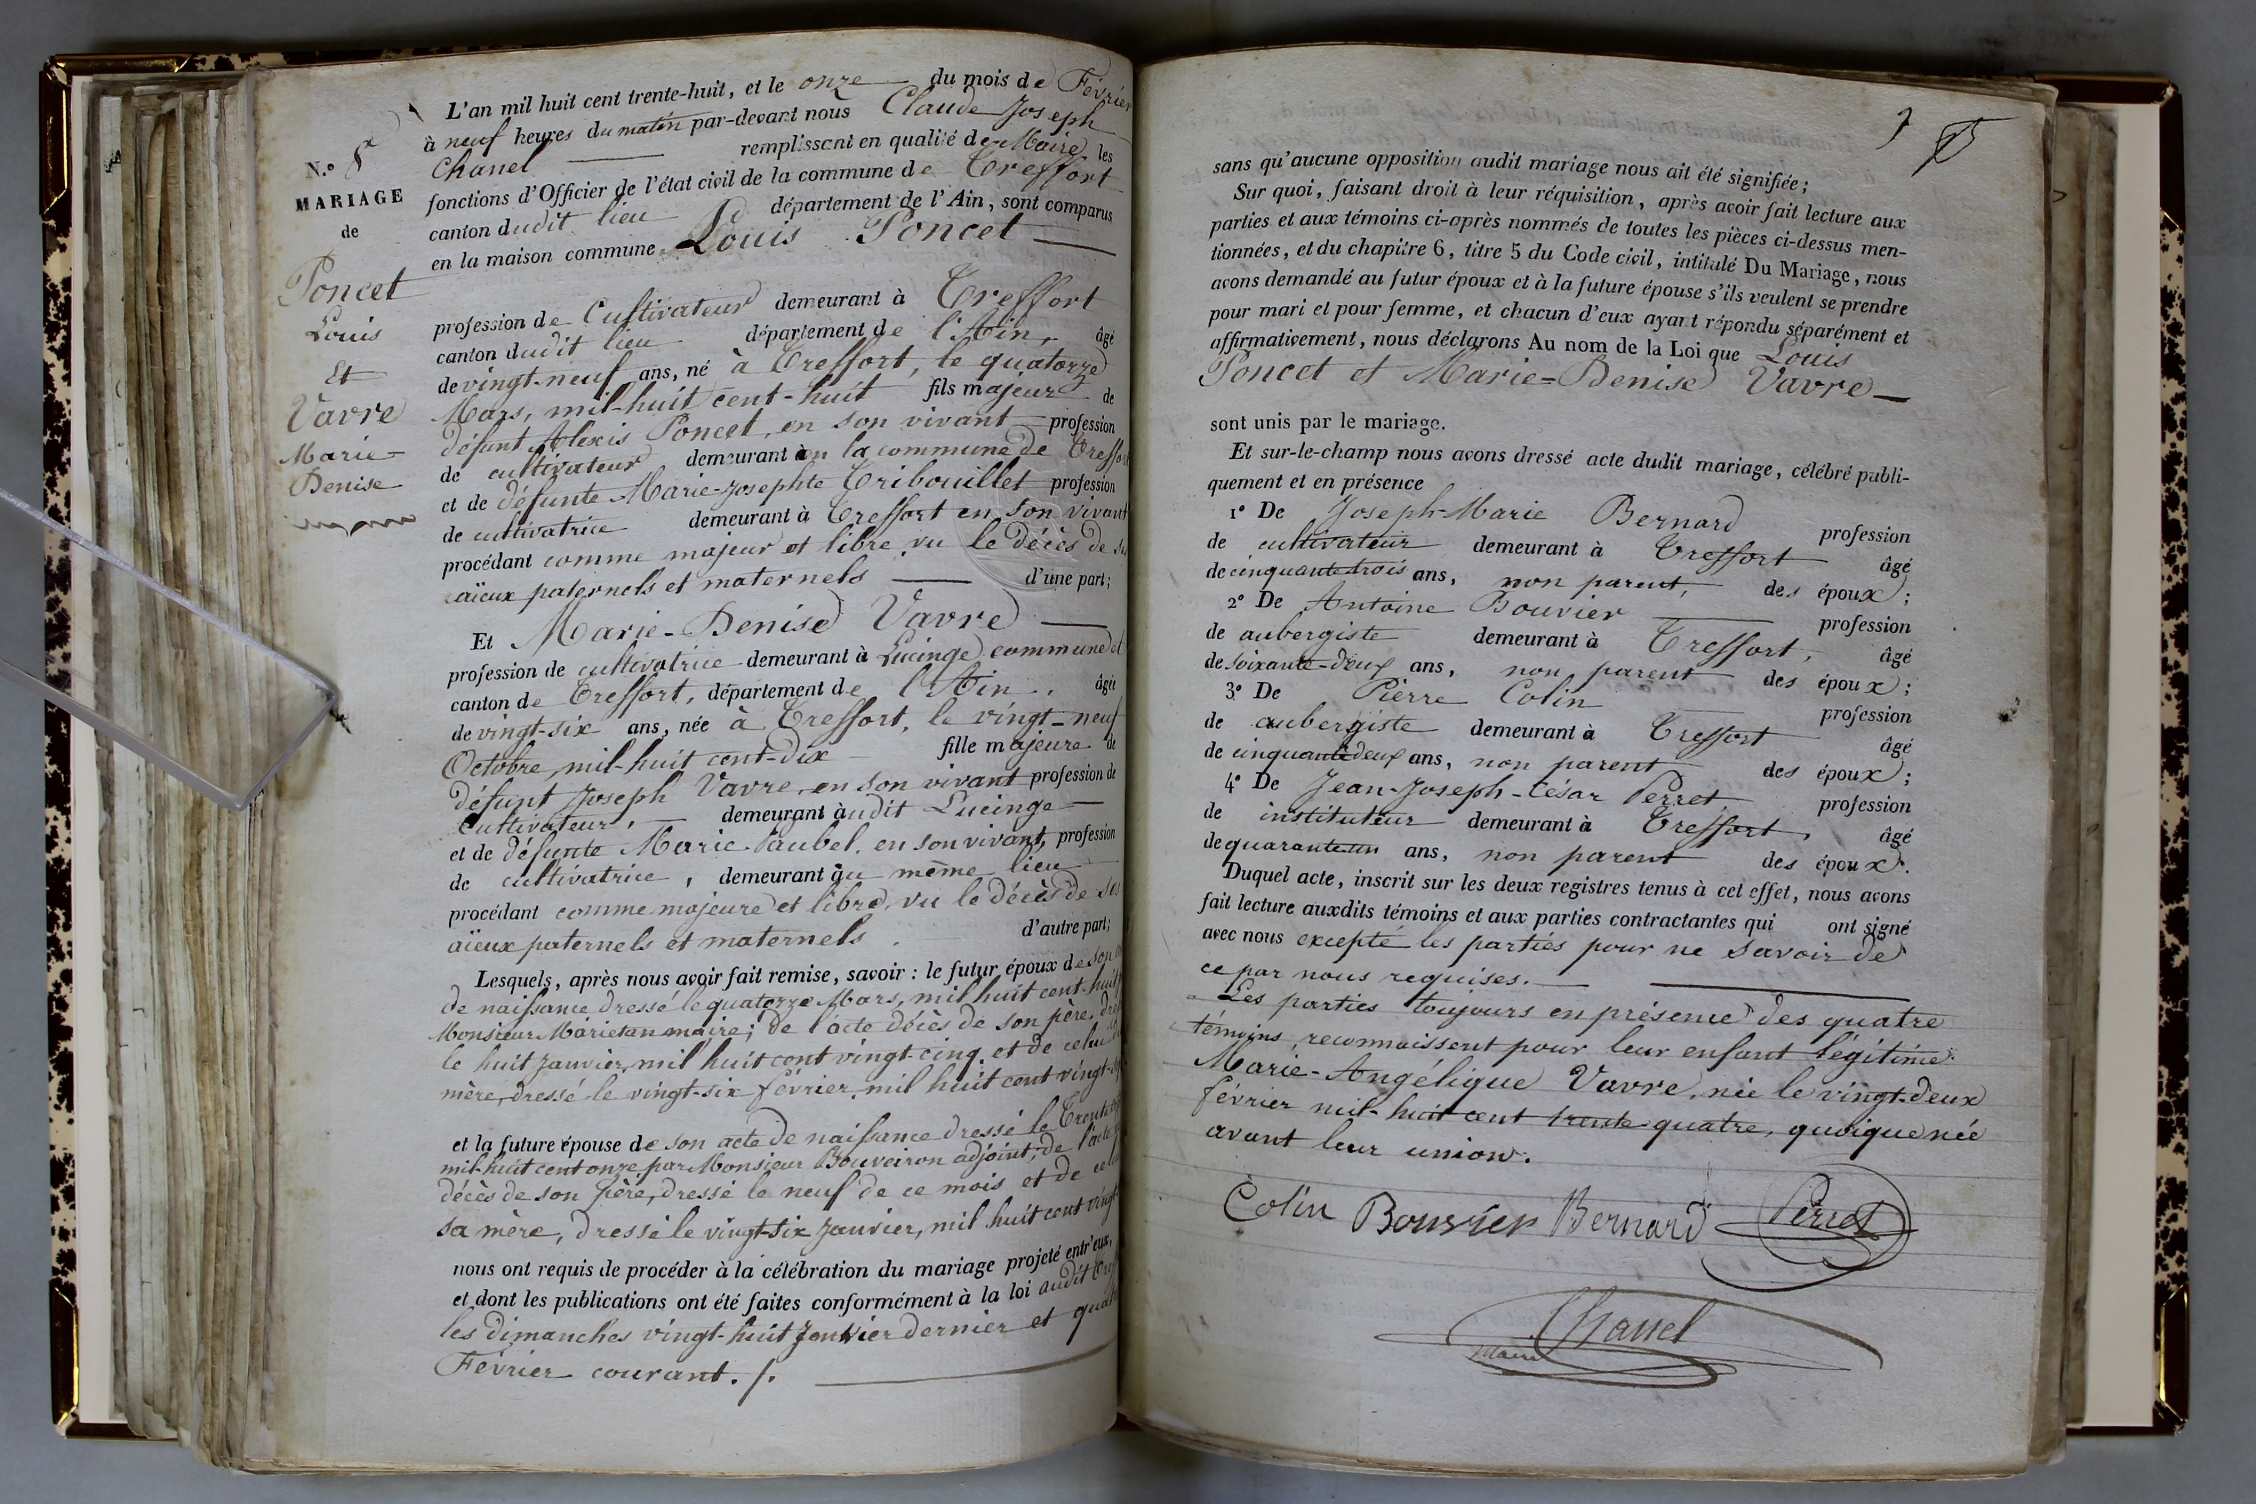 L'an mil huit cent trente-huit, et le onze du mois de Février
à neuf heures du matin par-devant nous Claude Joseph
Chanel remplissant en qualité de Maire les
fonctions d'Officier de l'état civil de la commune de Treffort
canton dudit lieu département de l'Ain, sont comparus
en la maison commune Louis Poncet
profession de Cultivateur demeurant à Treffort
canton dudit lieu département de l'Ain, âgé
de vingt-neuf ans, né à Treffort, le quatorze
Mars, mil-huit cent-huit fils majeur de
défunt Alexis Poncet, en son vivant profession
de cultivateur demeurant en la commune de Treffort
et de défunte Marie-Josephte Tribouillet profession
de cultivatrice demeurant à Treffort en son vivant
procédant comme majeur et libre, vu le décès de
aïeux paternels et maternels d'une part;
Et Marie-Denise Vavre
profession de cultivatrice demeurant à Lucinge commune et
canton de Treffort, département de l'Ain, âgée
de vingt-six ans, née à Treffort, le vingt-neuf
Octobre, mil-huit cent-dix fille majeure de
défunt Joseph Vavre, en son vivant profession de
cultivateur, demeurant audit Lucinge
et de défunte Marie Paubel, en son vivant, profession
de cultivatrice, demeurant au même lieu
procédant comme majeure et libre, vu le décès de ses
aïeux paternels et maternels. d'autre part;
Lesquels, après nous avoir fait remise, savoir : le futur époux de son
de naissance dressé le quatorze Mars, mil huit cent-huit
Monsieur Marietan maire; de l'acte décès de son père,
le huit Janvier, mil huit cent vingt-cinq. et de celui
mère, dressé le vingt-six février, mil huit cent
et la future épouse de son acte de naissance dressé le
mil-huit cent onze par Monsieur Bouveiron adjoint; de l'acte
décès de son père, dressé le neuf de ce mois et de
sa mère, dressé le vingt-six Janvier, mil huit cent
nous ont requis de procéder à la célébration du mariage projeté entr'eux,
et dont les publications ont été faites conformément à la loi audit
les dimanches vingt-huit Janvier dernier et
Février courant. /.
N.º 8
MARIAGE
de
Poncet
Louis
Et
Vavre
Marie-
Denise
sans qu'aucune opposition audit mariage nous ait été signifiée;
Sur quoi, faisant droit à leur réquisition, après avoir fait lecture aux
parties et aux témoins ci-après nommés de toutes les pièces ci-dessus men-
tionnées, et du chapitre 6, titre 5 du Code civil, intitulé Du Mariage, nous
avons demandé au futur époux et à la future épouse s'ils veulent se prendre
pour mari et pour femme, et chacun d'eux ayant répondu séparément et
affirmativement, nous déclarons Au nom de la Loi que Louis
Poncet et Marie-Denise Vavre
sont unis par le mariage.
Et sur-le-champ nous avons dressé acte dudit mariage, célébré publi-
quement et en présence
1º De Joseph-Marie Bernard profession
de cultivateur demeurant à Treffort âgé
de cinquante trois ans, non parent, des époux;
2º De Antoine Bouvier profession
de aubergiste demeurant à Treffort, âgé
de soixante-deux ans, non parent des époux;
3º De Pierre Colin profession
de aubergiste demeurant à Treffort âgé
de cinquante deux ans, non parent des époux;
4º De Jean-Joseph-César Perret profession
de instituteur demeurant à Treffort, âgé
de quarante un ans, non parent des époux.
Duquel acte, inscrit sur les deux registres tenus à cet effet, nous avons
fait lecture auxdits témoins et aux parties contractantes qui ont signé
avec nous excepté les parties pour ne savoir de
ce par nous requises.
Les parties toujours en présence des quatre
témoins, reconnaissent pour leur enfant légitime
Marie-Angélique Vavre, née le vingt-deux
février mil-huit cent trente quatre, quoique née
avant leur union.
Colin Bouvier Bernard Perret
Chanel
Maire